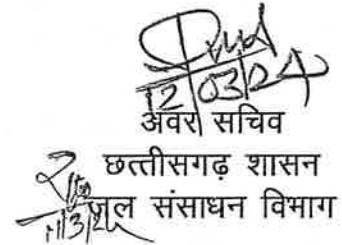 12/03/24
अवर सचिव
छत्तीसगढ़ शासन
जल संसाधन विभाग